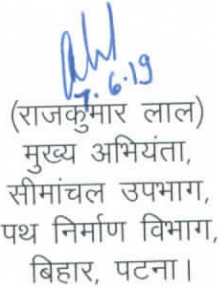 7.6.19
(राजकुमार लाल)
मुख्य अभियंता,
सीमांचल उपभाग,
पथ निर्माण विभाग,
बिहार, पटना।